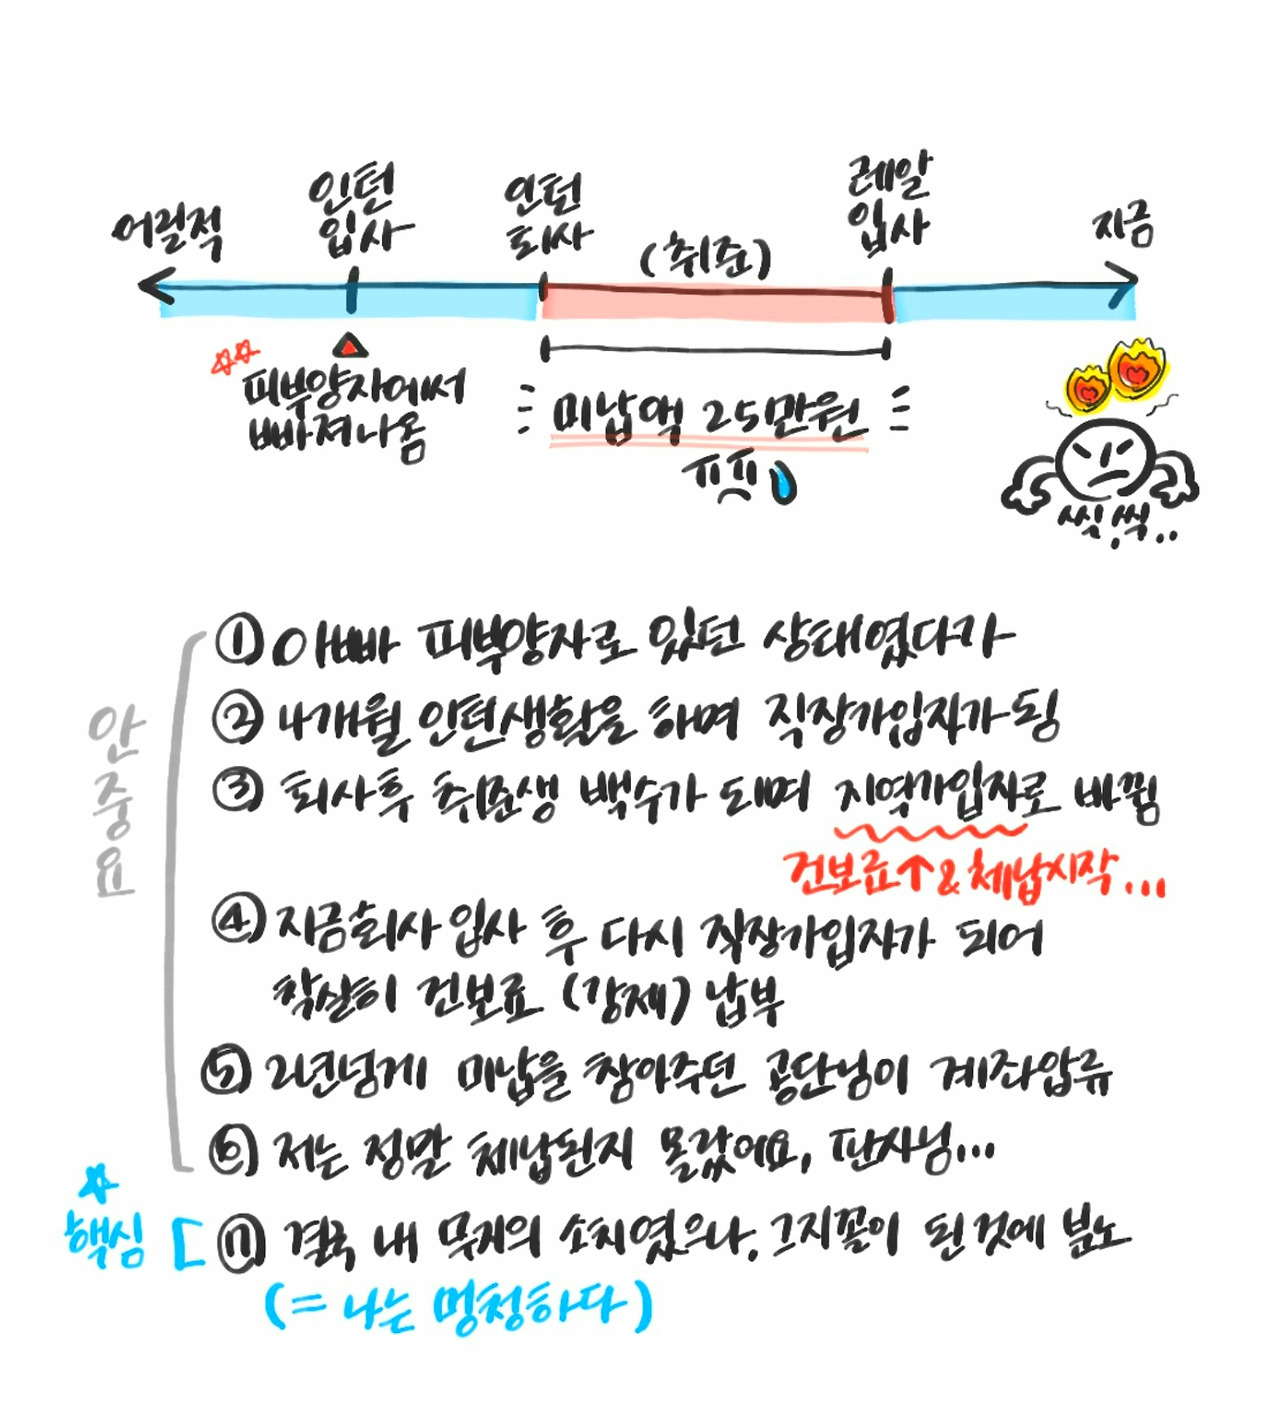 어릴적
인턴
입사
인턴
퇴사
(취준)
레알
입사
지금
피부양자에서
빠져나옴
미납액 25만원
ㅠㅠ
씩, 씩..
안중요
① 아빠 피부양자로 있던 상태였다가
② 4개월 인턴생활을 하며 직장가입자가 됨
③ 퇴사 후 취준생 백수가 되며 지역가입자로 바뀜
건보료↑& 체납시작...
④ 지금회사 입사 후 다시 직장가입자가 되어
착실히 건보료 (강제) 납부
⑤ 2년넘게 미납을 참아주던 공단님이 계좌압류
⑥ 저는 정말 체납된지 몰랐어요, 판사님...
핵심
⑦ 결국 내 무지의 소치였으나, 그지꼴이 된 것에 분노
(= 나는 멍청하다)